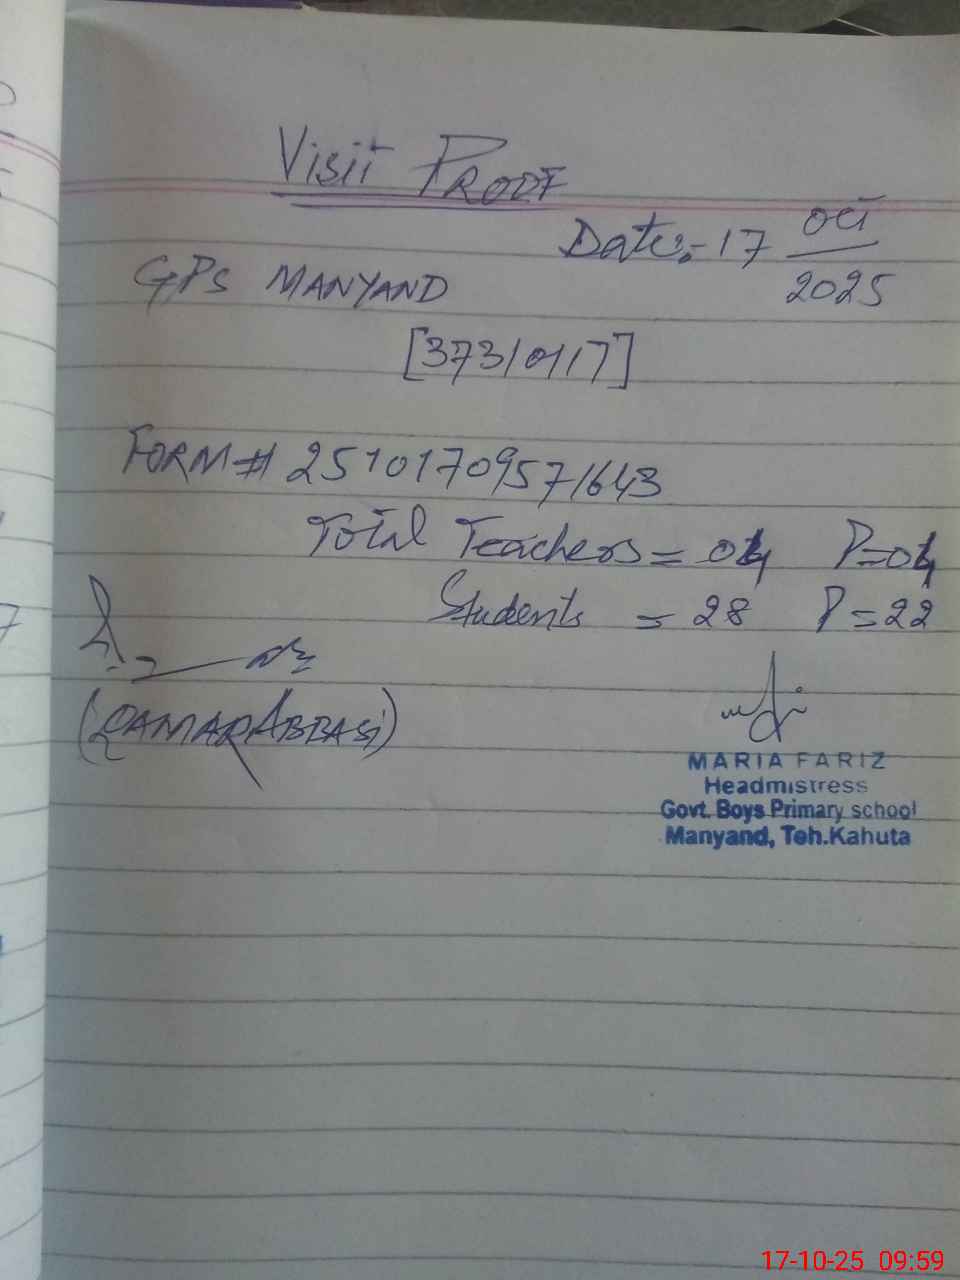 Visit PROOF
Date:- 17 Oct/2025
GPS MANYAND
[37310117]
FORM# 25101709571643
Total Teachers = 04 P=04
Students = 28 P=22
(QAMAR ABBASI)
MARIA FARIZ
Headmistress
Govt. Boys Primary school
Manyand, Teh.Kahuta
17-10-25 09:59